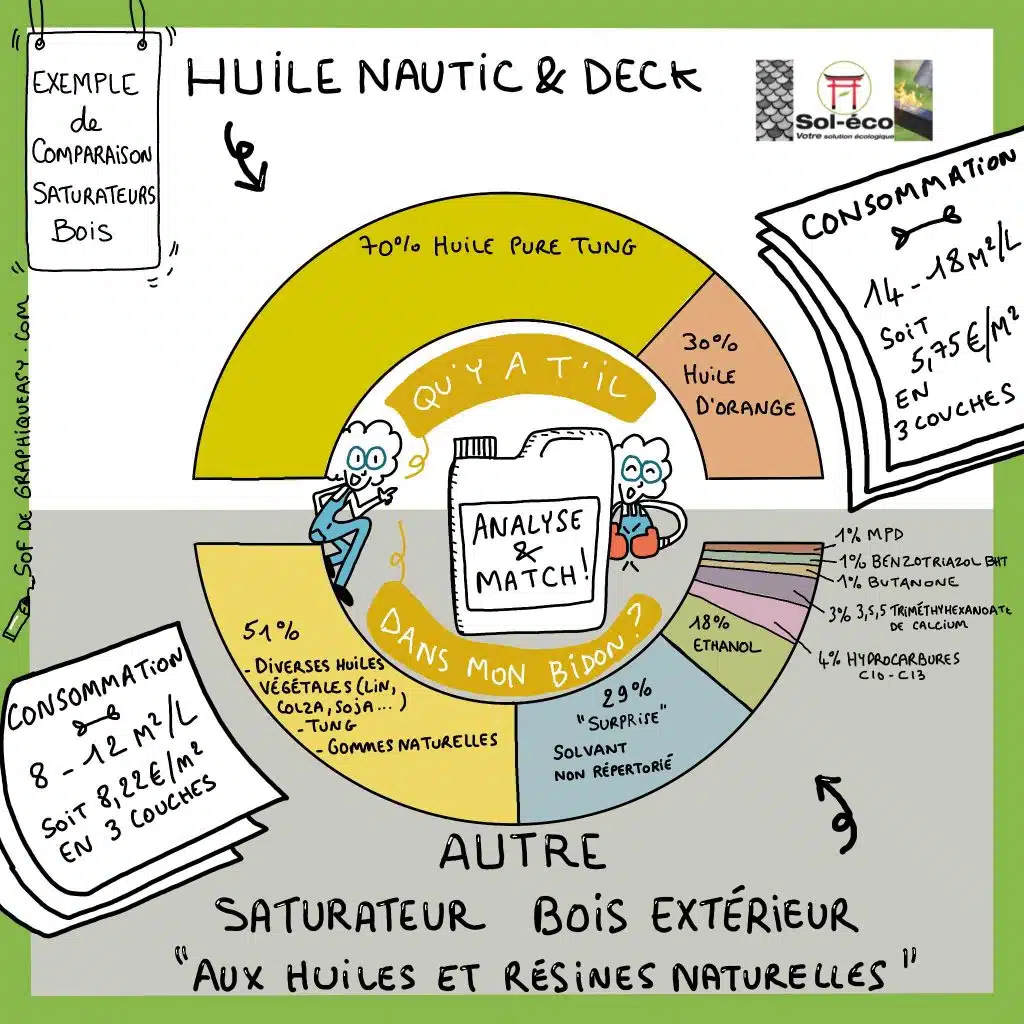 EXEMPLE
de
COMPARAISON
SATURATEURS
BOIS
HUILE NAUTIC & DECK
Sol-éco
Votre solution écologique
CONSOMMATION
14 - 18 M²/L
SOIT
5,75€/M²
EN
3 COUCHES
70% HUILE PURE TUNG
30%
HUILE
D'ORANGE
QU'Y A T'IL
ANALYSE
&
MATCH!
DANS MON BIDON?
SOF DE GRAPHIQUEASY.COM
1% MPD
1% BENZOTRIAZOL BHT
1% BUTANONE
3% 3,5,5 TRIMÉTHYHEXANOATE
DE CALCIUM
4% HYDROCARBURES
C10-C13
18%
ETHANOL
29%
"SURPRISE"
SOLVANT
NON RÉPERTORIÉ
51%
- DIVERSES HUILES
VÉGÉTALES (LIN,
COLZA, SOJA...)
- TUNG
- GOMMES NATURELLES
CONSOMMATION
8 - 12 M²/L
SOIT 8,22€/M²
EN 3 COUCHES
AUTRE
SATURATEUR BOIS EXTÉRIEUR
"AUX HUILES ET RÉSINES NATURELLES"